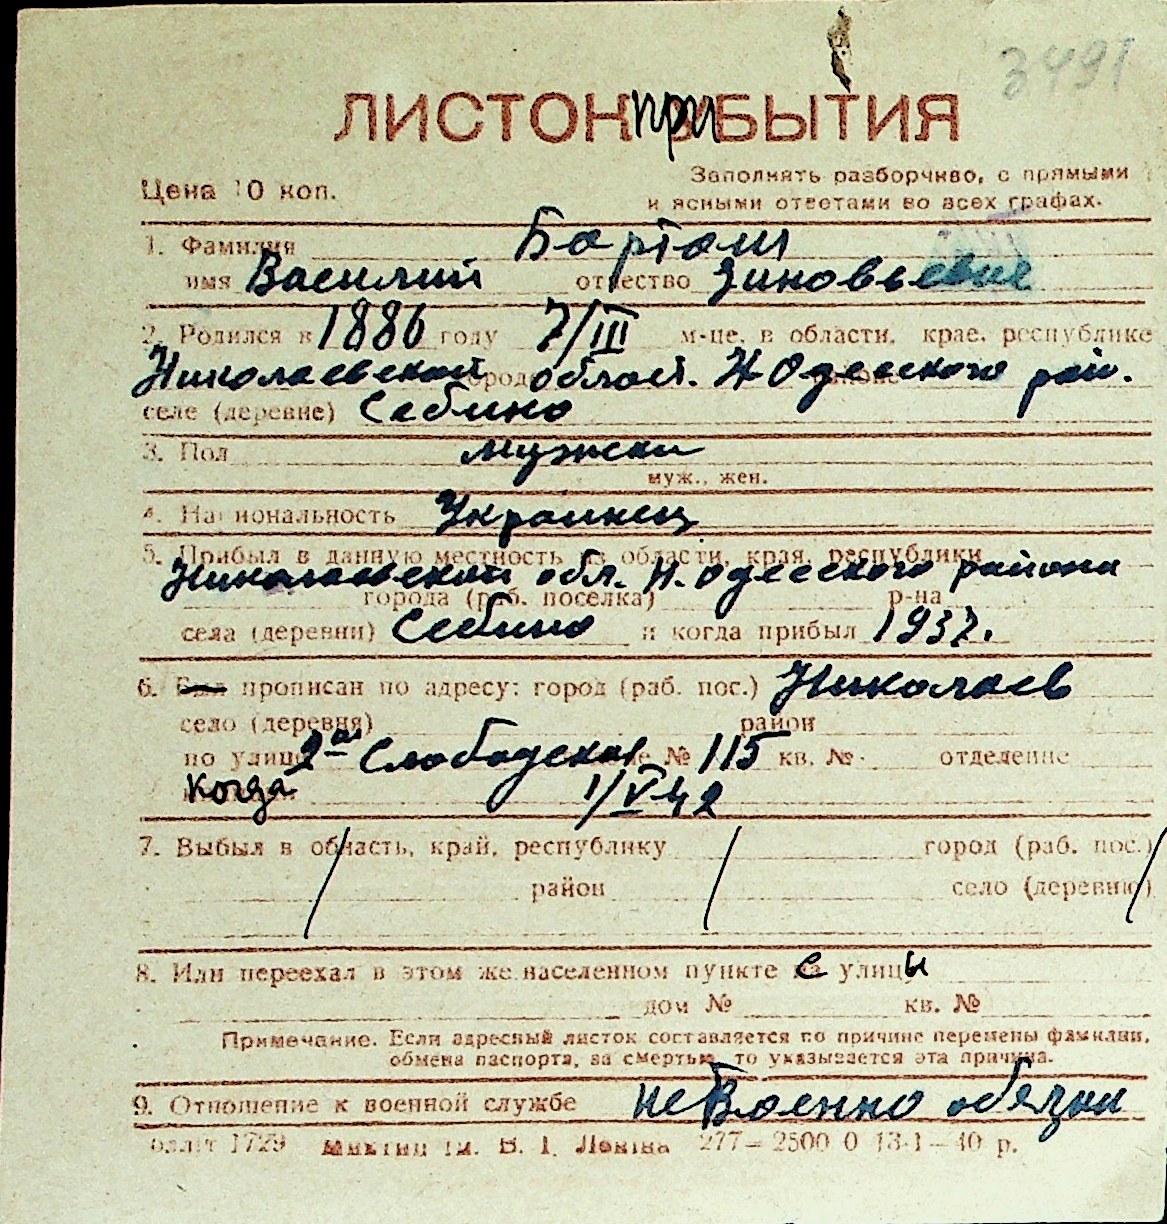 3491
ЛИСТОК при БЫТИЯ
Цена 10 коп.
Заполнять разборчиво, с прямыми
и ясными ответами во всех графах.
1. Фамилия Бортош
имя Василий отчество Зиновьевич
2. Родился в 1886 году 7/III м-це, в области, крае, республике
Николаевской област. Н Одесского рай.
селе (деревне) Себино
3. Пол мужски
муж., жен.
4. Национальность Украинец
5. Прибыл в данную местность из области, края, республики
Николаевской обл. Н. Одесского района
города (раб. поселка) р-на
села (деревни) Себино и когда прибыл 1937.
6. Был прописан по адресу: город (раб. пос.) Николаев
село (деревня) район
по улице 2ая Слободская № 115 кв. № отделение
Когда 1/V 42
7. Выбыл в область, край, республику город (раб. пос.)
район село (деревню)
8. Или переехал в этом же населенном пункте с улицы
дом № кв. №
Примечание. Если адресный листок составляется по причине перемены фамилии,
обмена паспорта, за смертью, то указывается эта причина.
9. Отношение к военной службе не Военно обязан
1729 ім. В. І. Леніна 277—2500 0 13-1—40 р.